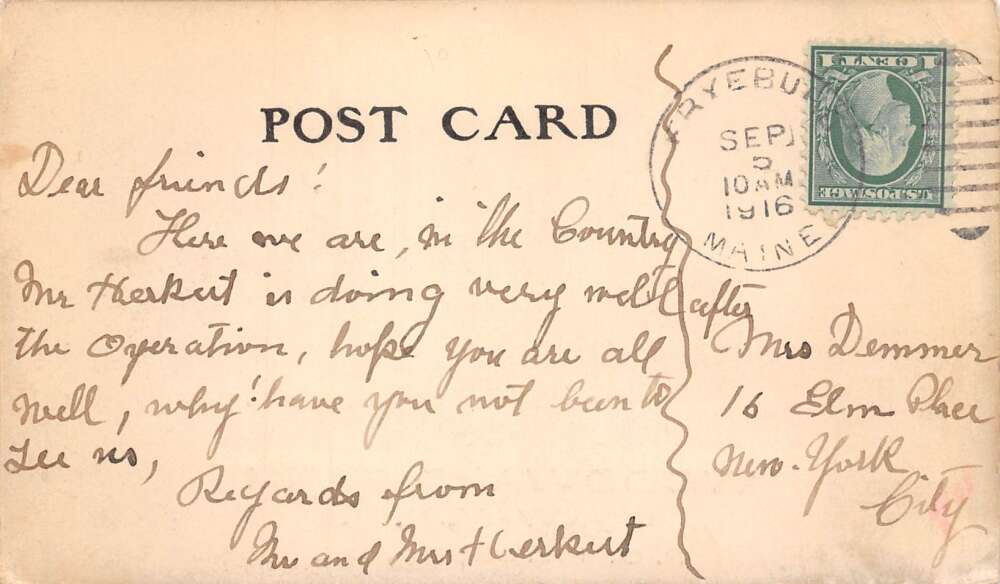 POST CARD
FRYEBURG
SEP
5
10 AM
1916
MAINE
1 CENT 1
U.S. POSTAGE
Dear friends!
Here we are, in the Country
Mr Herkert is doing very well after
the Operation, hope you are all
well, why! have you not been to
see us,
Regards from
Mr and Mrs Herkert
Mrs Demmer
16 Elm Place
New-York
City